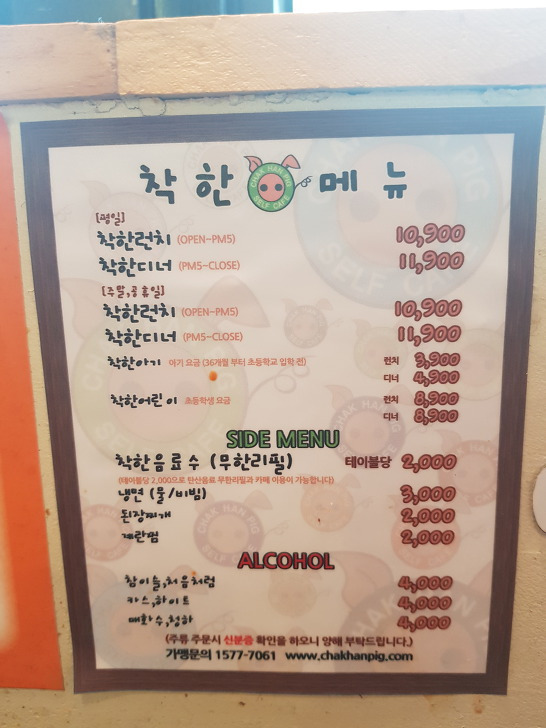 착한 CHAK HAN PIG SELF CAFE 메뉴
[평일]
착한런치 (OPEN~PM5) 10,900
착한디너 (PM5~CLOSE) 11,900
[주말,공휴일]
착한런치 (OPEN~PM5) 10,900
착한디너 (PM5~CLOSE) 11,900
착한아기 아기 요금 (36개월 부터 초등학교 입학 전) 런치 3,900
디너 4,900
착한어린이 초등학생 요금 런치 8,900
디너 8,900
SIDE MENU
착한음료수 (무한리필) 테이블당 2,000
(테이블당 2,000으로 탄산음료 무한리필과 카페 이용이 가능합니다)
냉면 (물/비빔) 3,000
된장찌개 2,000
계란찜 2,000
ALCOHOL
참이슬,처음처럼 4,000
카스,하이트 4,000
매화수,청하 4,000
(주류 주문시 신분증 확인을 하오니 양해 부탁드립니다.)
가맹문의 1577-7061 www.chakhanpig.com